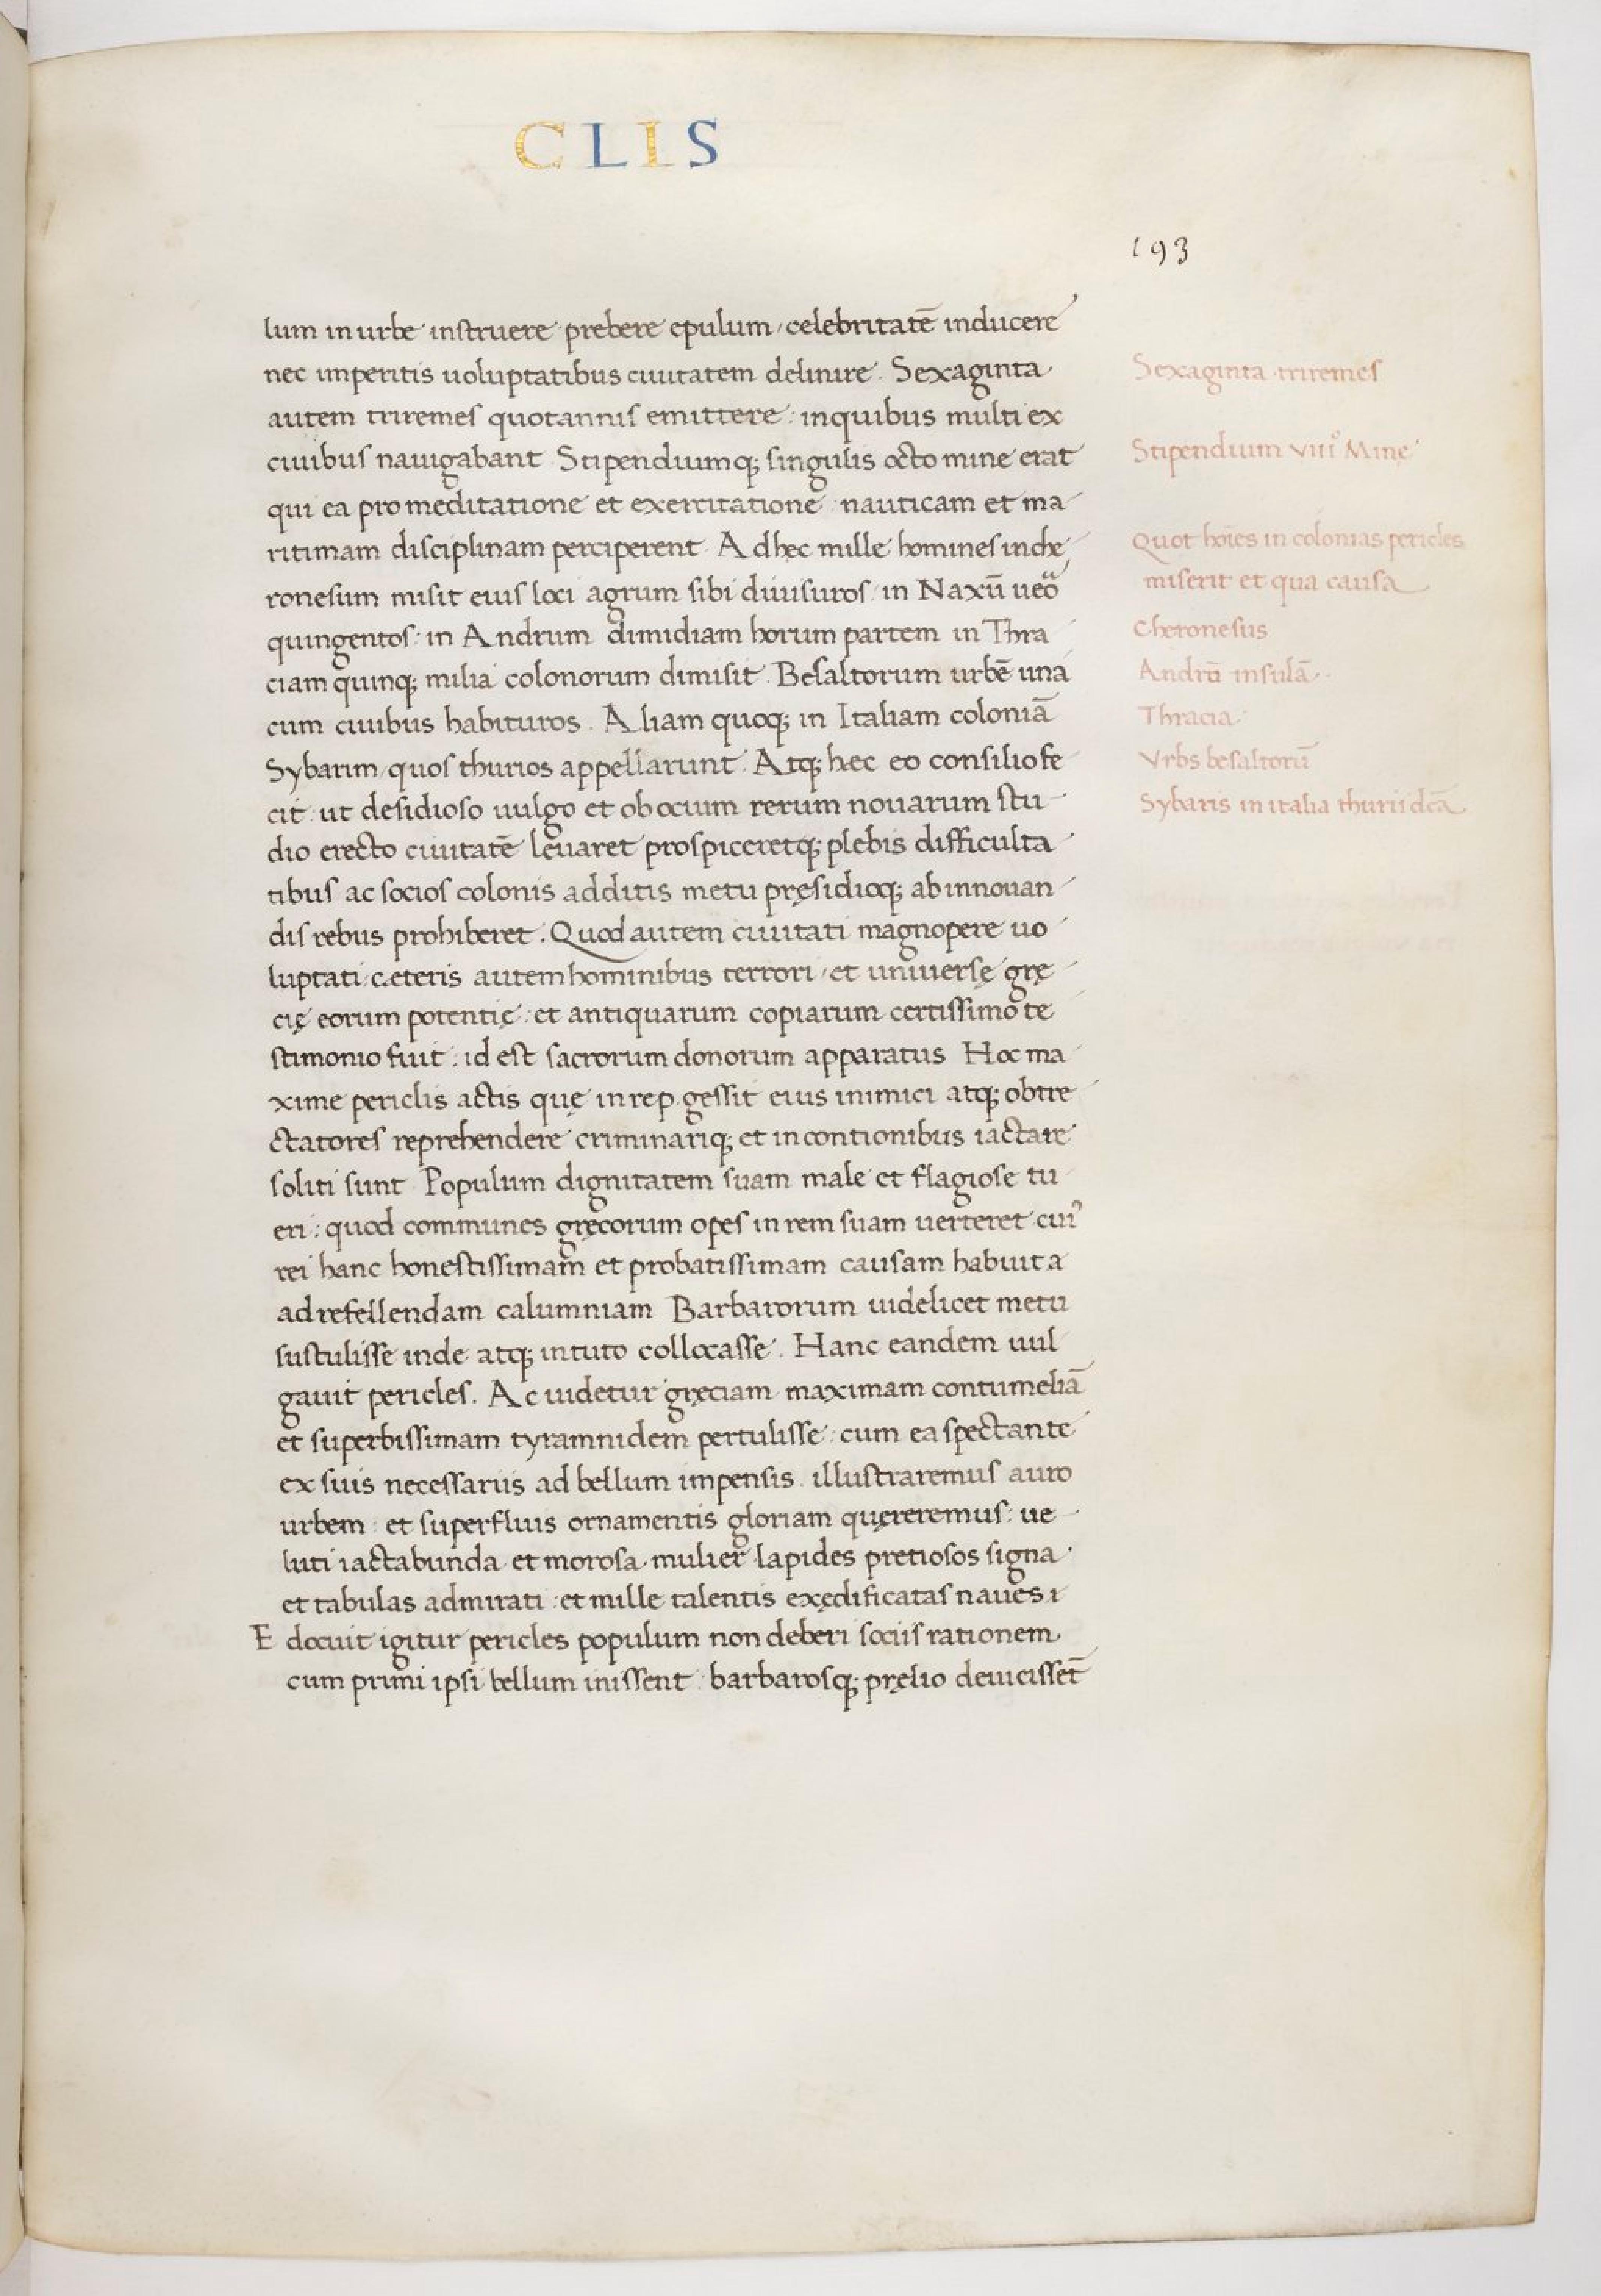 CLIS
193
lum in urbe instruere prebere epulum, celebritatē inducere
nec imperitis uoluptatibus ciuitatem delinire. Sexaginta
autem triremes quotannis emittere: inquibus multi ex
ciuibus nauigabant. Stipendiumq; singulis octo mine erat
qui ea pro meditatione et exercitatione nauticam et ma
ritimam disciplinam perciperent. Adhec mille homines inche
ronesum misit eius loci agrum sibi diuisuros: in Naxū ueo
quingentos: in Andrum dimidiam horum partem in Thra
ciam quinq; milia colonorum dimisit. Besaltorum urbē una
cum ciuibus habituros. Aliam quoq; in Italiam coloniā
Sybarim, quos thurios appellarunt. Atq; hec eo consilio fe
cit: ut desidioso uulgo et ob ocium rerum nouarum stu
dio erecto ciuitatē leuaret prospiceretq; plebis difficulta
tibus ac socios colonis additis metu pręsidioq; ab innouan
dis rebus prohiberet. Quod autem ciuitati magnopere uo
luptati: cæteris autem hominibus terrori, et uniuersę grę
cię eorum potentię: et antiquarum copiarum certissimo te
stimonio fuit: id est sacrorum donorum apparatus Hoc ma
xime periclis actis quę in rep. gessit eius inimici atq; obtre
ctatores reprehendere criminariq; et in contionibus iactare
soliti sunt Populum dignitatem suam male et flagiose tu
eri: quod communes gręcorum opes in rem suam uerteret cui
rei hanc honestissimam et probatissimam causam habuit a
ad refellendam calumniam Barbarorum uidelicet metu
sustulisse inde atq; in tuto collocasse. Hanc eandem uul
gauit pericles. Ac uidetur gręciam maximam contumeliā
et superbissimam tyramnidem pertulisse: cum ea spectante
ex suis necessariis ad bellum impensis illustraremus auro
urbem: et superfluis ornamentis gloriam quęreremus: ue
luti iactabunda et morosa mulier lapides pretiosos signa
et tabulas admirati: et mille talentis exędificatas naues i
E docuit igitur pericles populum non deberi sociis rationem
cum primi ipsi bellum inissent: barbarosq; pręlio deuicissēt
Sexaginta triremes
Stipendium VIII° Minę
Quot hoīes in colonias pericles
miserit et qua causa
Cheronesus
Andrū insulā
Thracia
Vrbs besaltorū
Sybaris in italia thurii dcā